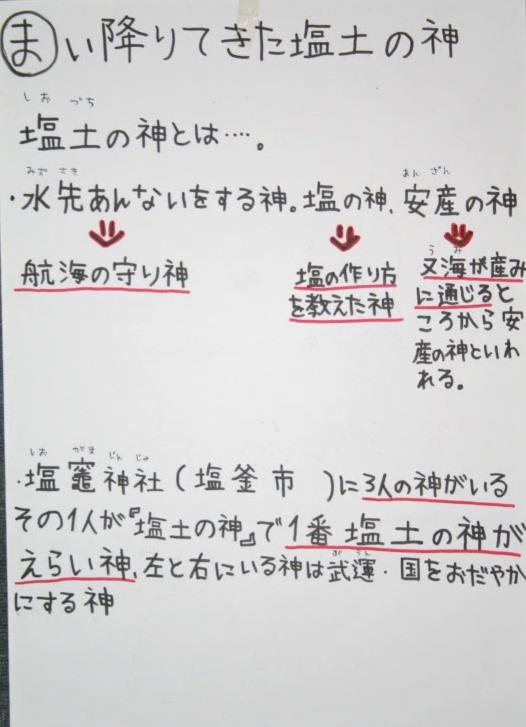 まい降りてきた塩土の神
しお づち
塩土の神とは…。
みず さき あん ざん
・水先あんないをする神。塩の神、安産の神
航海の守り神
塩の作り方
を教えた神
うみ
又海が産み
に通じると
ころから安
産の神といわ
れる。
しお がま じん じゃ
・塩竈神社(塩釜市 )に3人の神がいる
その1人が『塩土の神』で1番塩土の神が
ぶ うん
えらい神、左と右にいる神は武運・国をおだやか
にする神